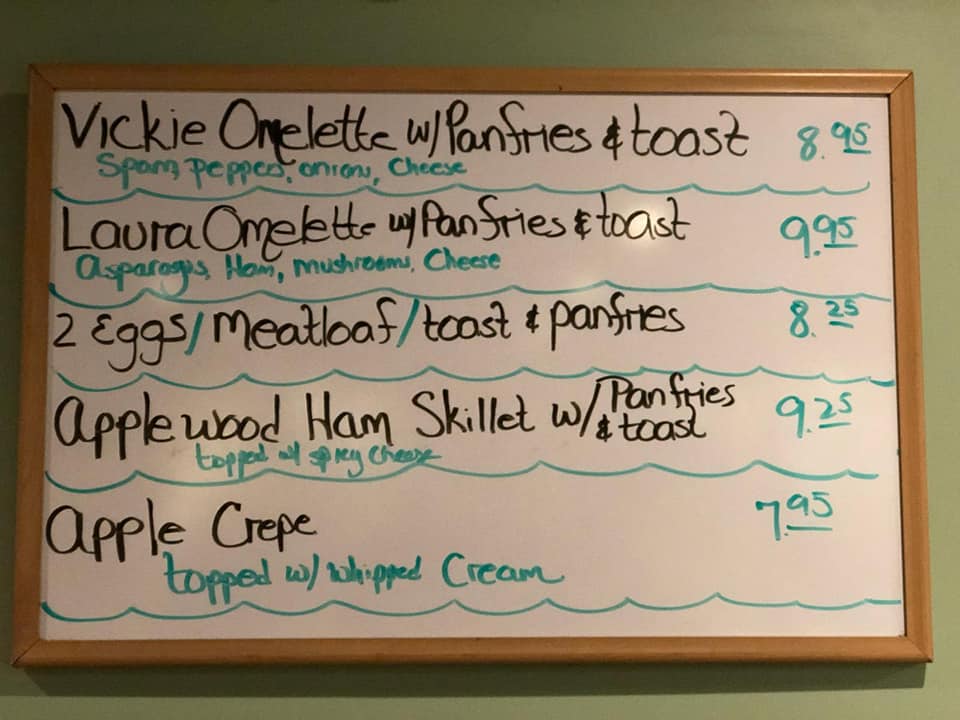 Vickie Omelette w/Panfries & toast 8.95
Spam, peppers, onions, Cheese
Laura Omelette w/Panfries & toast 9.95
Asparagus, Ham, mushrooms, Cheese
2 Eggs/Meatloaf/toast & panfries 8.25
Applewood Ham Skillet w/Panfries & toast 9.25
topped w/ spicy Cheese
Apple Crepe 7.95
topped w/ whipped Cream